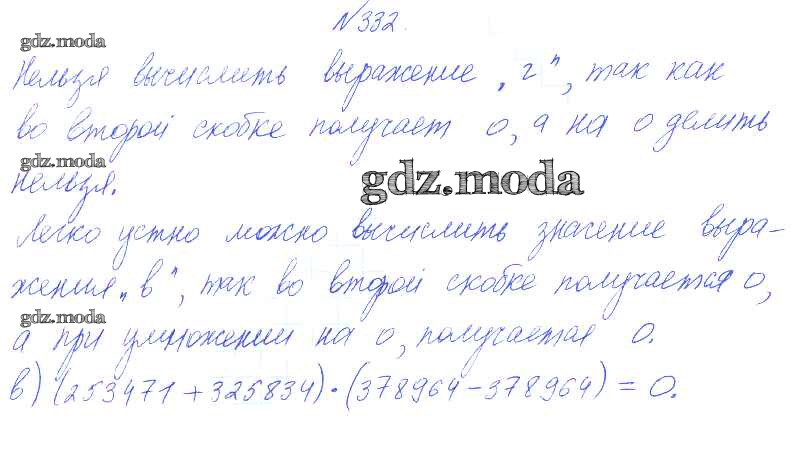 №332.
gdz.moda
Нельзя вычислить выражение „г", так как
во второй скобке получает 0, а на 0 делить
gdz.moda
нельзя.
gdz.moda
Легко устно можно вычислить значение выра-
жения „в", так во второй скобке получается 0,
gdz.moda
а при умножении на 0, получается 0.
в) (253471+325834)·(378964-378964) = 0.